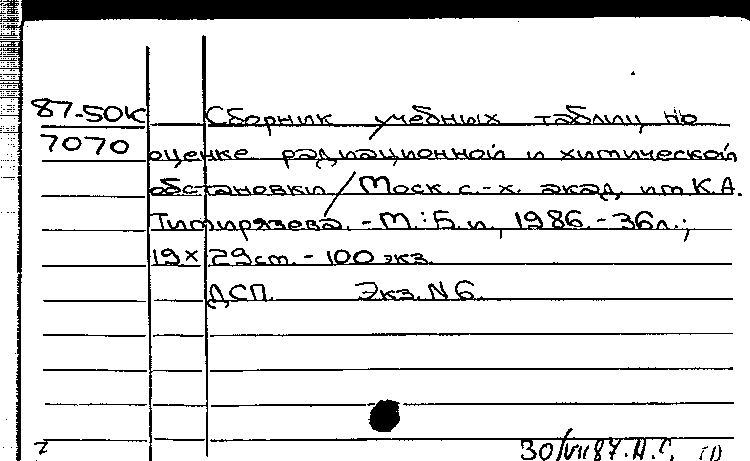 87-50К Сборник учебных таблиц по
7070 оценке радиационной и химической
обстановки / Моск. с.-х. акад. им К.А.
Тимирязева. - М.: Б. и., 1986. - 36л.;
19 х 29 см. - 100 экз.
ДСП. Экз. N 6.
30/VII 87.